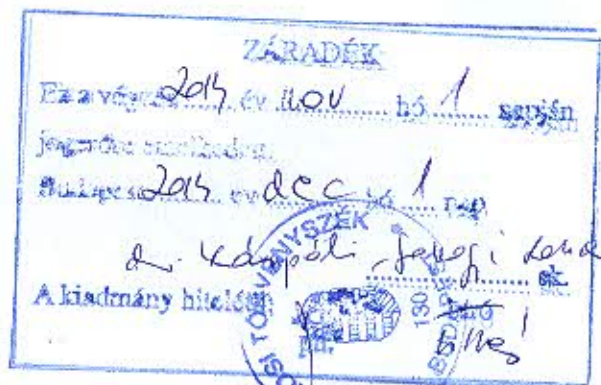 ZÁRADÉK
Ez a végzés 2014 év nov hó 1 napján
jogerőre emelkedett.
Budapest 2014 év dec hó 1 nap
dr. Kárpáti
sk.
A kiadmány hiteléül
bíró
OSI TÖRVÉNYSZÉK
130
BUDAPES